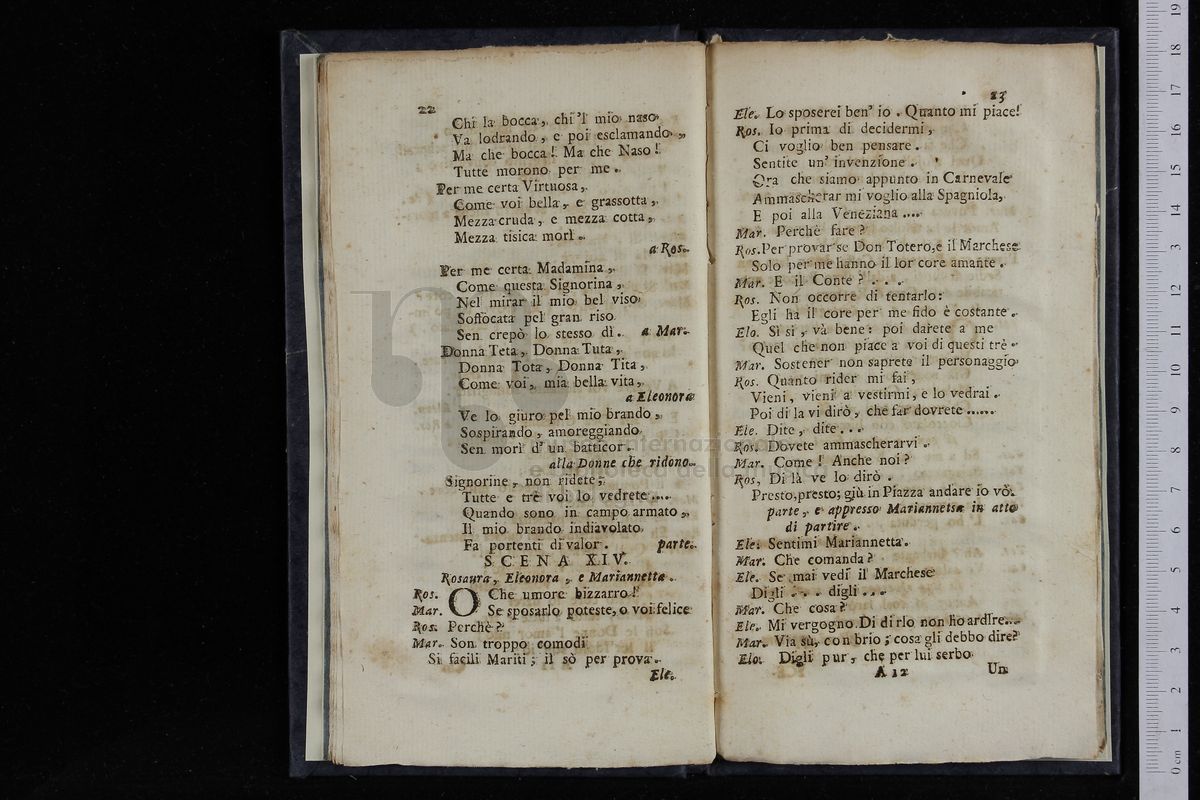 22
Chi la bocca, chi 'l mio naso
Va lodrando, e poi esclamando,
Ma che bocca! Ma che Naso!
Tutte morono per me.
Per me certa Virtuosa,
Come voi bella, e grassotta,
Mezza cruda, e mezza cotta,
Mezza tisica morì.
a Ros.
Per me certa Madamina,
Come questa Signorina,
Nel mirar il mio bel viso
Soffocata pel gran riso
Sen crepò lo stesso dì. a Mar.
Donna Teta, Donna Tuta,
Donna Tota, Donna Tita,
Come voi, mia bella vita,
a Eleonora
Ve lo giuro pel mio brando,
Sospirando, amoreggiando
Sen morì d' un batticor.
alla Donne che ridono.
Signorine, non ridete;
Tutte e trè voi lo vedrete....
Quando sono in campo armato,
Il mio brando indiavolato
Fa portenti di valor. parte.
SCENA XIV.
Rosaura, Eleonora, e Mariannetta.
Ros. O Che umore bizzarro!
Mar. Se sposarlo poteste, o voi felice
Ros. Perchè?
Mar. Son troppo comodi
Si facili Mariti; il sò per prova.
Ele.
23
Ele. Lo sposerei ben' io. Quanto mi piace!
Ros. Io prima di decidermi,
Ci voglio ben pensare.
Sentite un' invenzione.
Ora che siamo appunto in Carnevale
Ammascherar mi voglio alla Spagniola,
E poi alla Veneziana ....
Mar. Perchè fare?
Ros. Per provar se Don Totero, e il Marchese
Solo per me hanno il lor core amante.
Mar. E il Conte? . . .
Ros. Non occorre di tentarlo:
Egli ha il core per me fido è costante.
Elo. Sì si, và bene: poi darete a me
Quel che non piace a voi di questi trè.
Mar. Sostener non saprete il personaggio
Ros. Quanto rider mi fai,
Vieni, vieni a vestirmi, e lo vedrai.
Poi di la vi dirò, che far dovrete ......
Ele. Dite, dite...
Ros. Dovete ammascherarvi.
Mar. Come! Anche noi?
Ros, Di là ve lo dirò.
Presto, presto; giù in Piazza andare io vò.
parte, e appresso Mariannetta in atto
di partire.
Ele: Sentimi Mariannetta.
Mar. Che comanda?
Ele. Se mai vedi il Marchese
Digli . . . digli ...
Mar. Che cosa?
Ele. Mi vergogno Di dirlo non ho ardire...
Mar. Via sù, con brio; cosa gli debbo dire?
Elo. Digli pur, che per lui serbo
A 12 Un
0 cm 1 2 3 4 5 6 7 8 9 10 11 12 13 14 15 16 17 18 19